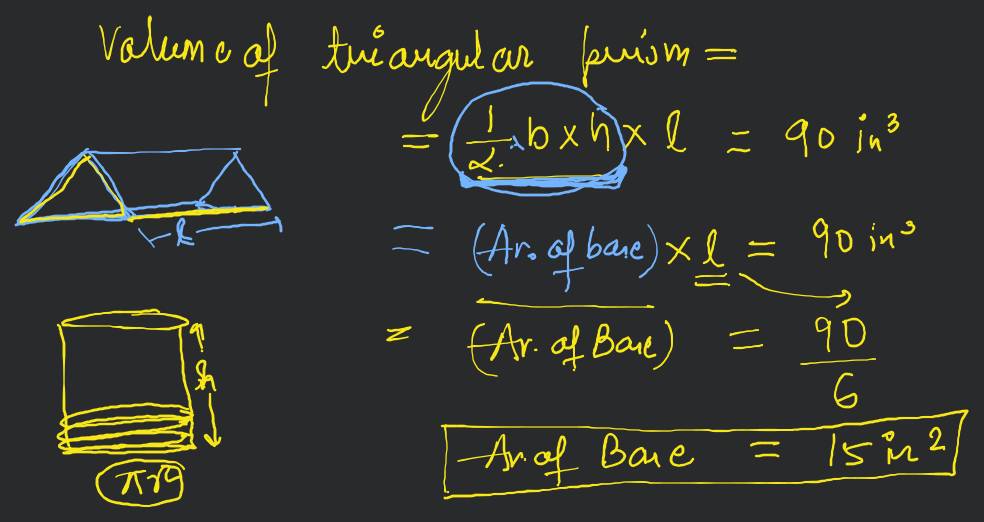 Volume of triangular prism =
= 1/2 × b × h × l = 90 in³
= (Ar. of base) × l = 90 in³
= (Ar. of Base) = 90/6
Ar. of Base = 15 in²
l
h